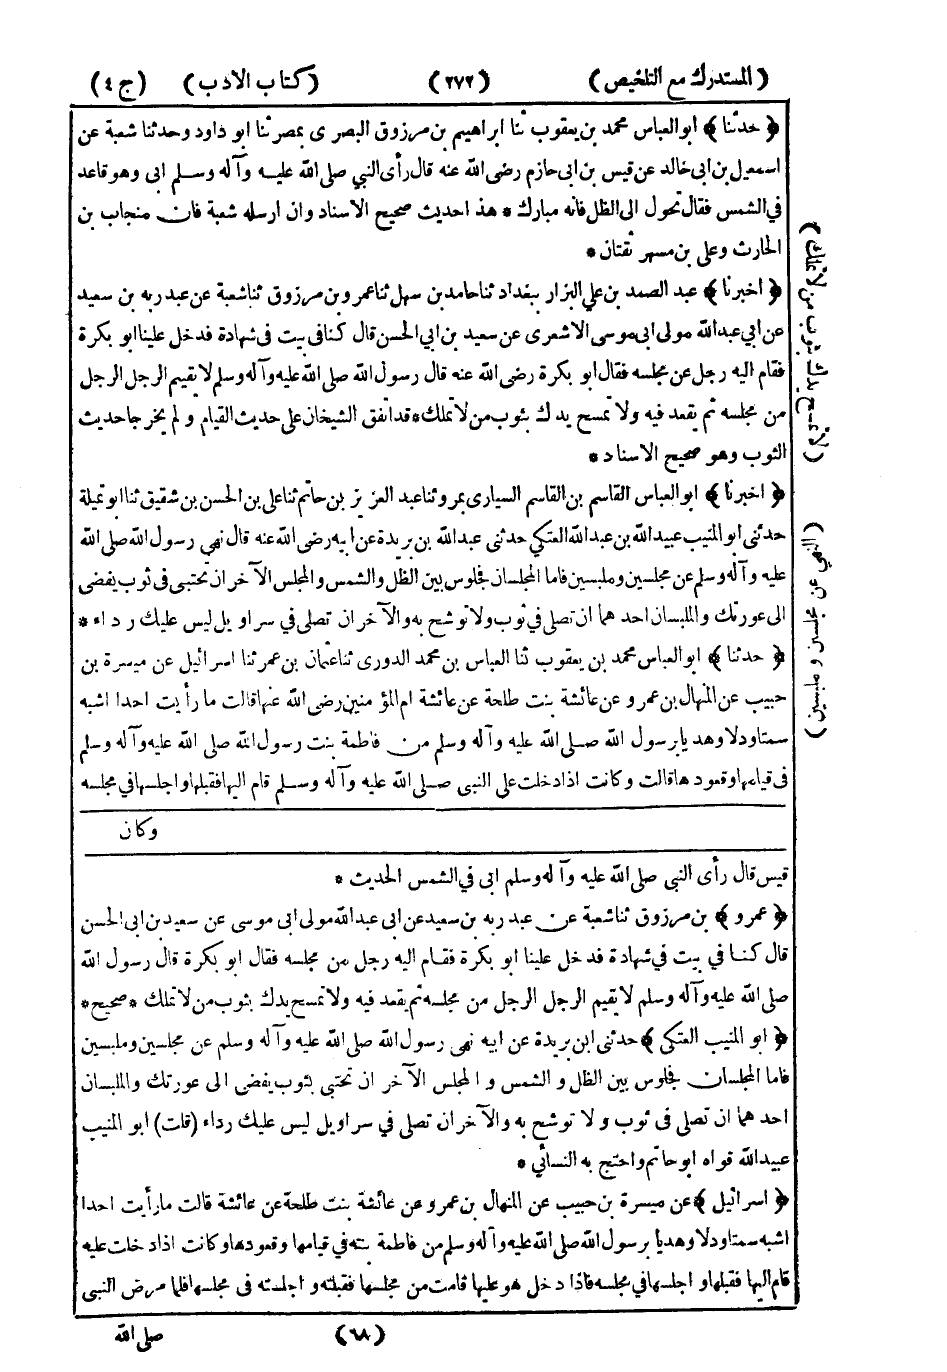 (المستدرك مع التلخيص) (٢٧٢) (كتاب الادب) (ج ٤)
﴿حدثنا﴾ ابو العباس محمد بن يعقوب ثنا ابراهيم بن مرزوق البصرى بمصر ثنا ابو داود وحدثنا شعبة عن
اسمعيل بن ابى خالد عن قيس بن ابى حازم رضى الله عنه قال رأى النبي صلى الله عليه وآله وسلم ابى وهو قاعد
في الشمس فقال تحول الى الظل فانه مبارك * هذ احديث صحيح الاسناد وان ارسله شعبة فان منجاب بن
الحارث وعلى بن مسهر ثقتان *
﴿اخبرنا﴾ عبد الصمد بن علي البزار ببغداد ثنا حامد بن سهل ثنا عمرو بن مرزوق ثنا شعبة عن عبد ربه بن سعيد
عن ابي عبد الله مولى ابى موسى الاشعرى عن سعيد بن ابي الحسن قال كنا فى بيت فى شهادة فدخل علينا ابو بكرة
فقام اليه رجل عن مجلسه فقال ابو بكرة رضى الله عنه قال رسول الله صلى الله عليه وآله وسلم لا يقيم الرجل الرجل
من مجلسه ثم يقعد فيه ولا تمسح يدك بثوب من لا تملك * قد اتفق الشيخان على حديث القيام ولم يخرجا حديث
الثوب وهو صحيح الاسناد *
﴿اخبرنا﴾ ابو العباس القاسم بن القاسم السيارى بمرو ثنا عبد العزيز بن حاتم ثنا على بن الحسن بن شقيق ثنا ابو تميلة
حدثنى ابو المنيب عبيد الله بن عبد الله العتكي حدثنى عبد الله بن بريدة عن ابيه رضى الله عنه قال نهي رسول الله صلى الله
عليه وآله وسلم عن مجلسين وملبسين فاما المجلسان فجلوس بين الظل والشمس والمجلس الآخر ان تحتبى فى ثوب يفضى
الى عورتك والملبسان احدهما ان تصلى في ثوب ولا توشح به والآخر ان تصلى في سراويل ليس عليك رداء *
﴿حدثنا﴾ ابو العباس محمد بن يعقوب ثنا العباس بن محمد الدورى ثنا عثمان بن عمر ثنا اسرائيل عن ميسرة بن
حبيب عن المنهال بن عمرو عن عائشة بنت طلحة عن عائشة ام المؤمنين رضى الله عنها قالت ما رأيت احدا اشبه
سمتا ودلا وهديا برسول الله صلى الله عليه وآله وسلم من فاطمة بنت رسول الله صلى الله عليه وآله وسلم
فى قيامها وقعودها قالت وكانت اذا دخلت على النبى صلى الله عليه وآله وسلم قام اليها فقبلها واجلسها في مجلسه
وكان
(لا تمسح يدك بثوب من لا تملك)
(النهى عن مجلسين وملبسين)
قيس قال رأى النبي صلى الله عليه وآله وسلم ابى في الشمس الحديث *
﴿عمرو﴾ بن مرزوق ثنا شعبة عن عبد ربه بن سعيد عن ابى عبد الله مولى ابى موسى عن سعيد بن ابى الحسن
قال كنا في بيت في شهادة فدخل علينا ابو بكرة فقام اليه رجل من مجلسه فقال ابو بكرة قال رسول الله
صلى الله عليه وآله وسلم لا يقيم الرجل الرجل من مجلسه ثم يقعد فيه ولا تمسح يدك بثوب من لا تملك * صحيح *
﴿ابو المنيب العتكى﴾ حدثنى ابن بريدة عن ابيه نهى رسول الله صلى الله عليه وآله وسلم عن مجلسين وملبسين
فاما المجلسان فجلوس بين الظل والشمس والمجلس الآخر ان تحتبى بثوب يفضى الى عورتك والملبسان
احدهما ان تصلى فى ثوب ولا توشح به والآخر ان تصلى في سراويل ليس عليك رداء (قلت) ابو المنيب
عبيد الله قواه ابو حاتم واحتج به النسائي *
﴿اسرائيل﴾ عن ميسرة بن حبيب عن المنهال بن عمرو عن عائشة بنت طلحة عن عائشة قالت ما رأيت احدا
اشبه سمتا ودلا وهديا برسول الله صلى الله عليه وآله وسلم من فاطمة بنته في قيامها وقعودها وكانت اذا دخلت عليه
قام اليها فقبلها واجلسها في مجلسه فاذا دخل هو عليها قامت من مجلسها فقبلته واجلسته فى مجلسها فلما مرض النبى
(٦٨) صلى الله